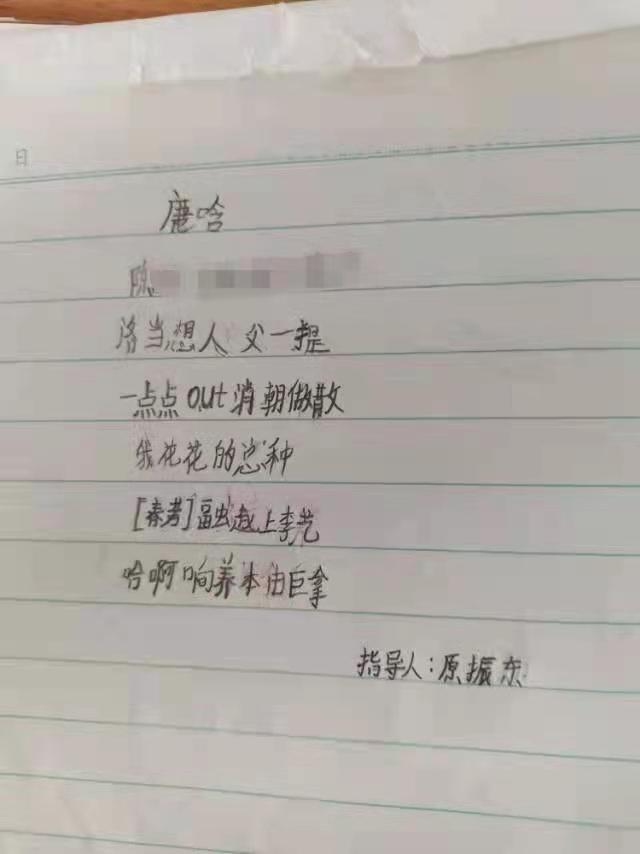 日
鹿哈
陈
洛当想人父一提
一点点out消朝做散
钱花花的总种
[秦考]融赵上李艺
哈啊响养本由巨拿
指导人：原振东